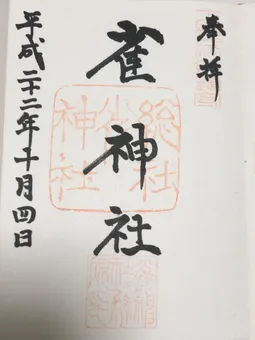 奉拝
雀神社
平成二十二年十月四日
総社
雀
神社